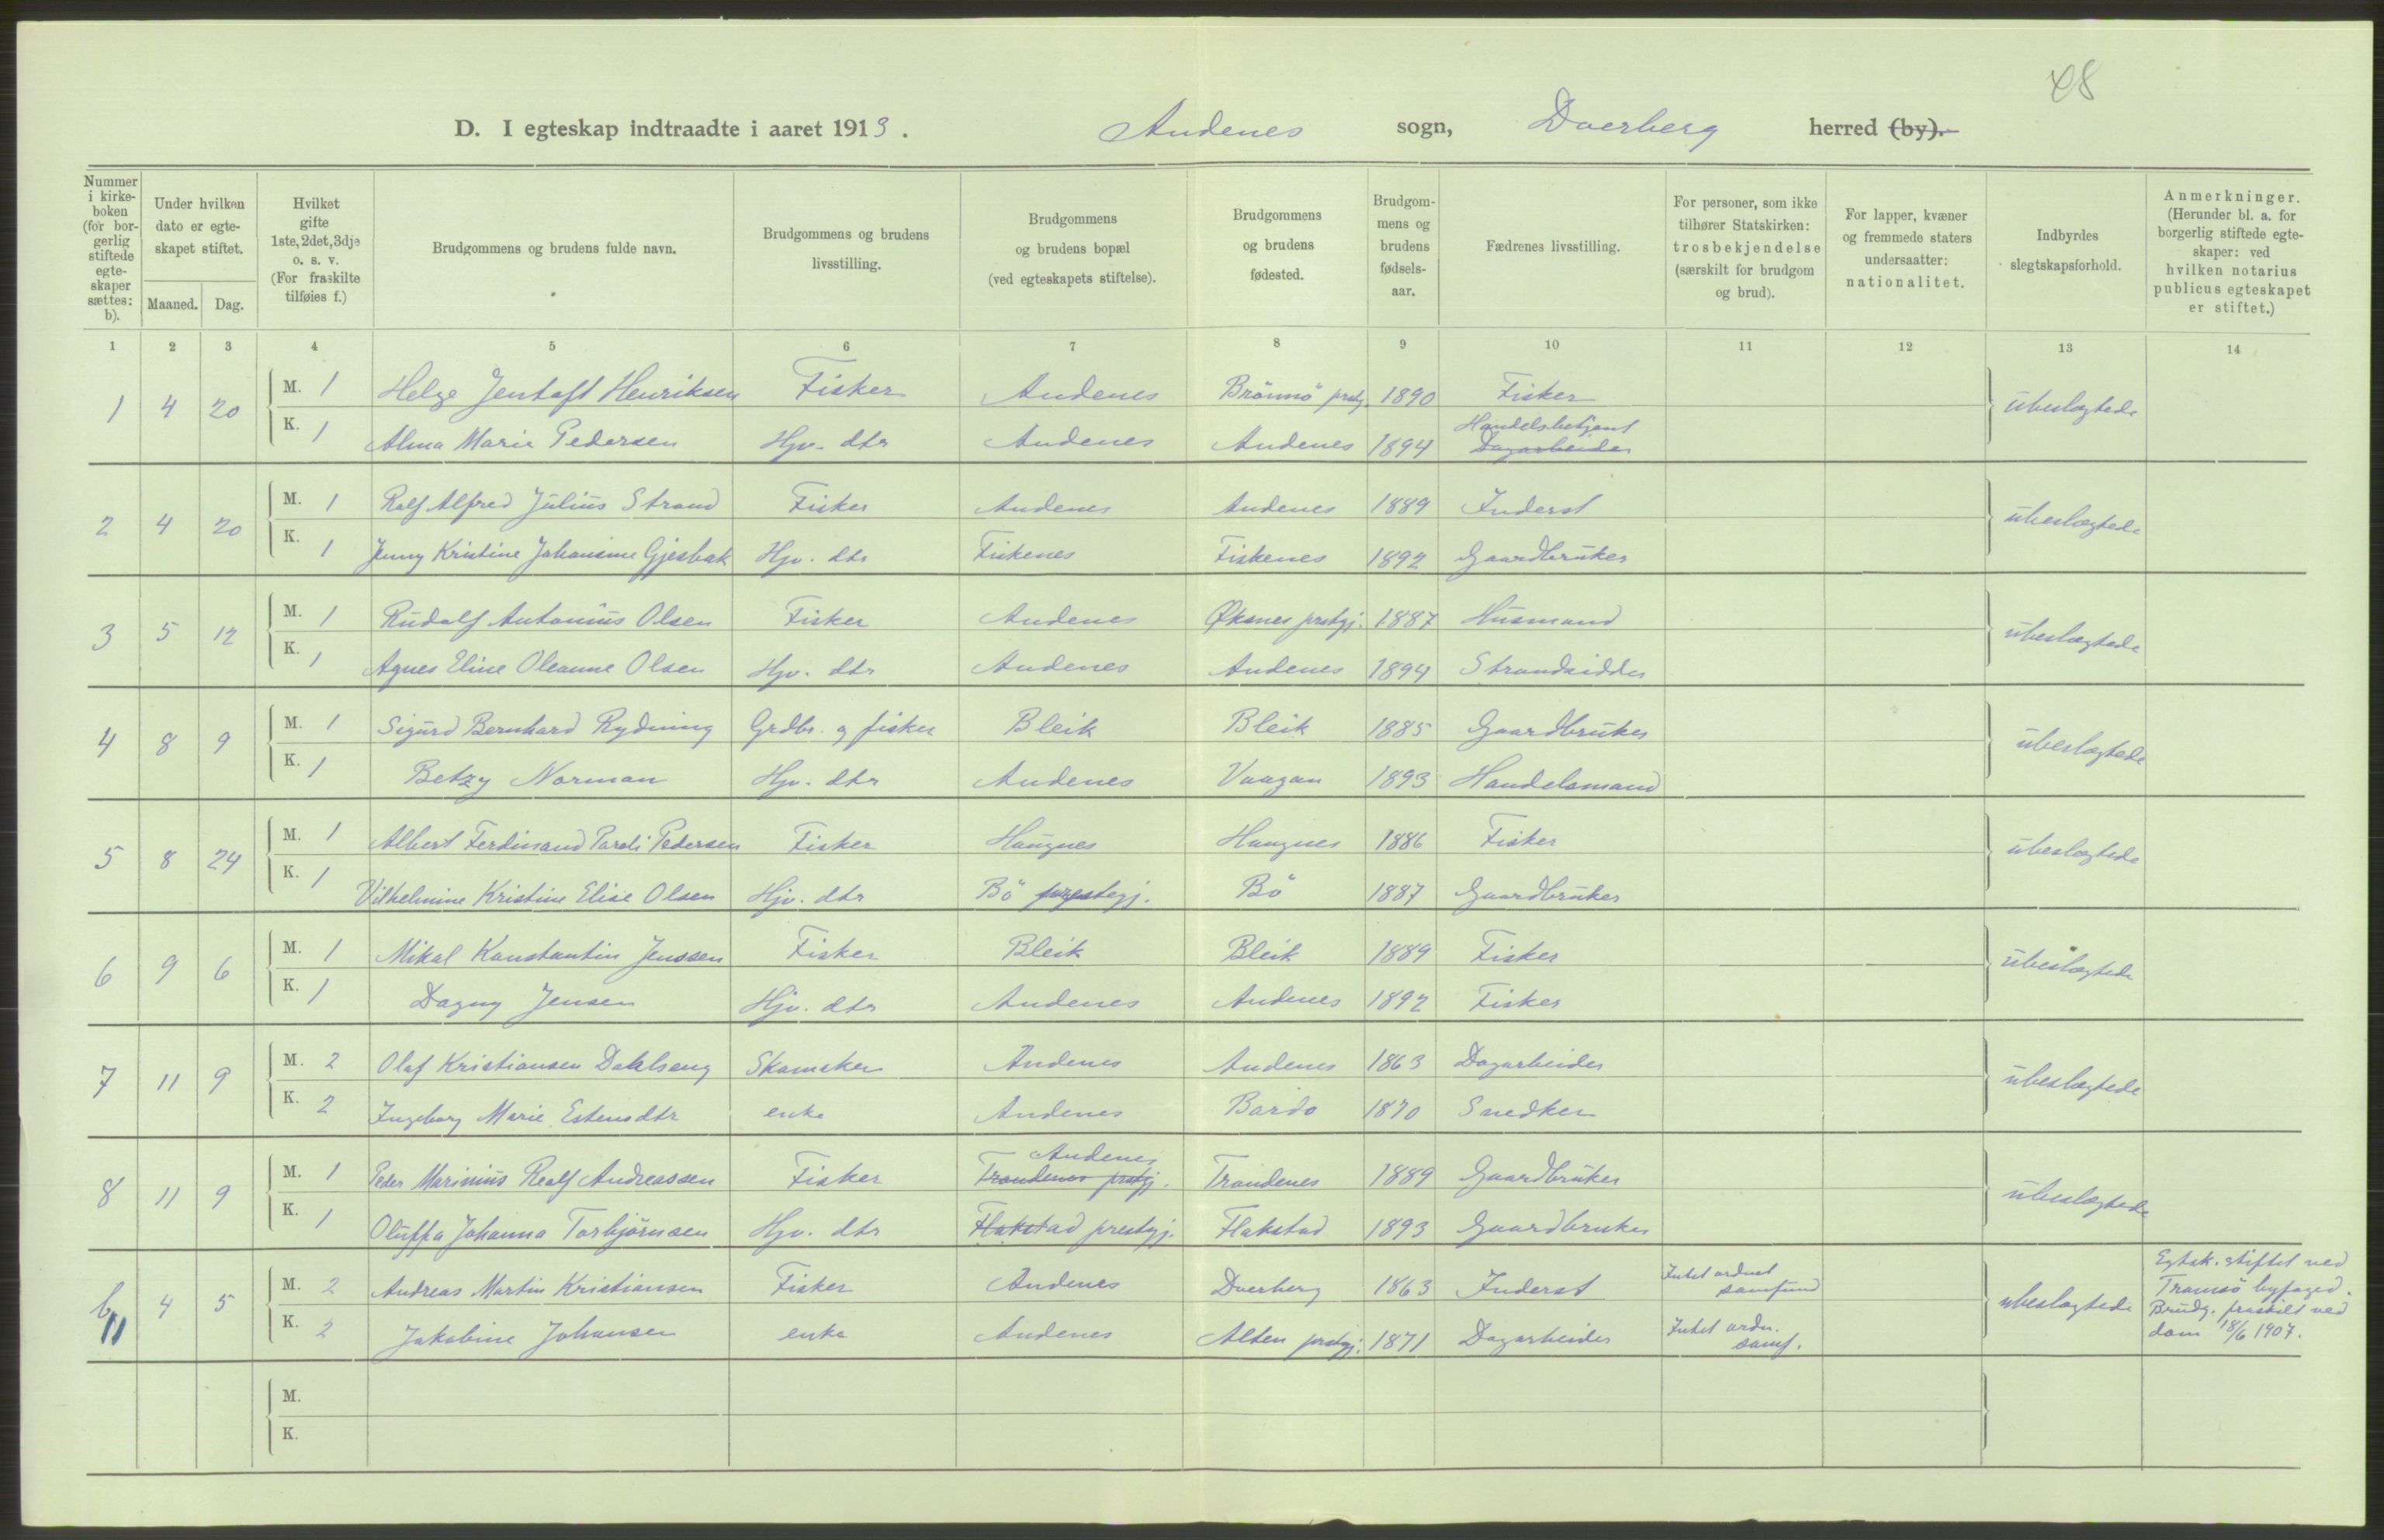 48
D. I egteskap indtraadte i aaret 1913. Andenes sogn, Dverberg herred (by).
Nummer i kirkeboken (for borgerlig stiftede egteskaper sættes: b).
Under hvilken dato er egteskapet stiftet.
Maaned. Dag.
Hvilket gifte 1ste, 2det, 3dje o. s. v. (For fraskilte tilføies f.)
Brudgommens og brudens fulde navn.
Brudgommens og brudens livsstilling.
Brudgommens og brudens bopæl (ved egteskapets stiftelse).
Brudgommens og brudens fødested.
Brudgommens og brudens fødselsaar.
Fædrenes livsstilling.
For personer, som ikke tilhører Statskirken: trosbekjendelse (særskilt for brudgom og brud).
For lapper, kvæner og fremmede staters undersaatter: nationalitet.
Indbyrdes slegtskapsforhold.
Anmerkninger. (Herunder bl. a. for borgerlig stiftede egteskaper: ved hvilken notarius publicus egteskapet er stiftet.)
1 2 3 4 5 6 7 8 9 10 11 12 13 14
1 4 20 M. 1 Helge Jentoft Henriksen Fisker Andenes Brönnö prstg. 1890 Fisker ubeslægtede
K. 1 Alma Marie Pedersen Hjv. dtr Andenes Andenes 1894 Handelsbetjent Dagarbeider
2 4 20 M. 1 Rolf Alfred Julius Strand Fisker Andenes Andenes 1889 Inderst ubeslægtede
K. 1 Jenny Kristine Johansine Gjesbak Hjv. dtr Fiskenes Fiskenes 1892 Gaardbruker
3 5 12 M. 1 Rudolf Antonius Olsen Fisker Andenes Øksnes prstgj. 1887 Husmand ubeslægtede
K. 1 Agnes Eline Oleanne Olsen Hjv. dtr Andenes Andenes 1894 Strandsidder
4 8 9 M. 1 Sigurd Bernhard Rydning Grdbr. og fisker Bleik Bleik 1885 Gaardbruker ubeslægtede
K. 1 Betzy Norman Hjv. dtr Andenes Vaagan 1893 Handelsmand
5 8 24 M. 1 Albert Ferdinand Pareli Pedersen Fisker Haugnes Haugnes 1886 Fisker ubeslægtede
K. 1 Vilhelmine Kristine Elise Olsen Hjv. dtr Bö prestegj. Bö 1887 Gaardbruker
6 9 6 M. 1 Mikal Konstantin Jenssen Fisker Bleik Bleik 1889 Fisker ubeslægtede
K. 1 Dagny Jensen Hjv. dtr Andenes Andenes 1892 Fisker
7 11 9 M. 2 Olaf Kristiansen Dahlseng Skomaker Andenes Andenes 1863 Dagarbeider ubeslægtede
K. 2 Ingeborg Marie Estensdtr enke Andenes Bardo 1870 Snedker
8 11 9 M. 1 Peder Marinius Realf Andreassen Fisker Andenes Trondenes prstgj. Trondenes 1889 Gaardbruker ubeslægtede
K. 1 Oluffa Johanna Torbjörnsen Hjv. dtr Flakstad prestgj. Flakstad 1893 Gaardbruker
b 4 5 M. 2 Andreas Martin Kristiansen Fisker Andenes Dverberg 1863 Inderst Intet ordnet samfund ubeslægtede Egtsk. stiftet ved Tromsö byfoged. Brudg. fraskilt ved dom 18/6 1907.
K. 2 Jakobine Johansen enke Andenes Alten prstgj. 1871 Dagarbeider Intet ordn. samf.
M.
K.